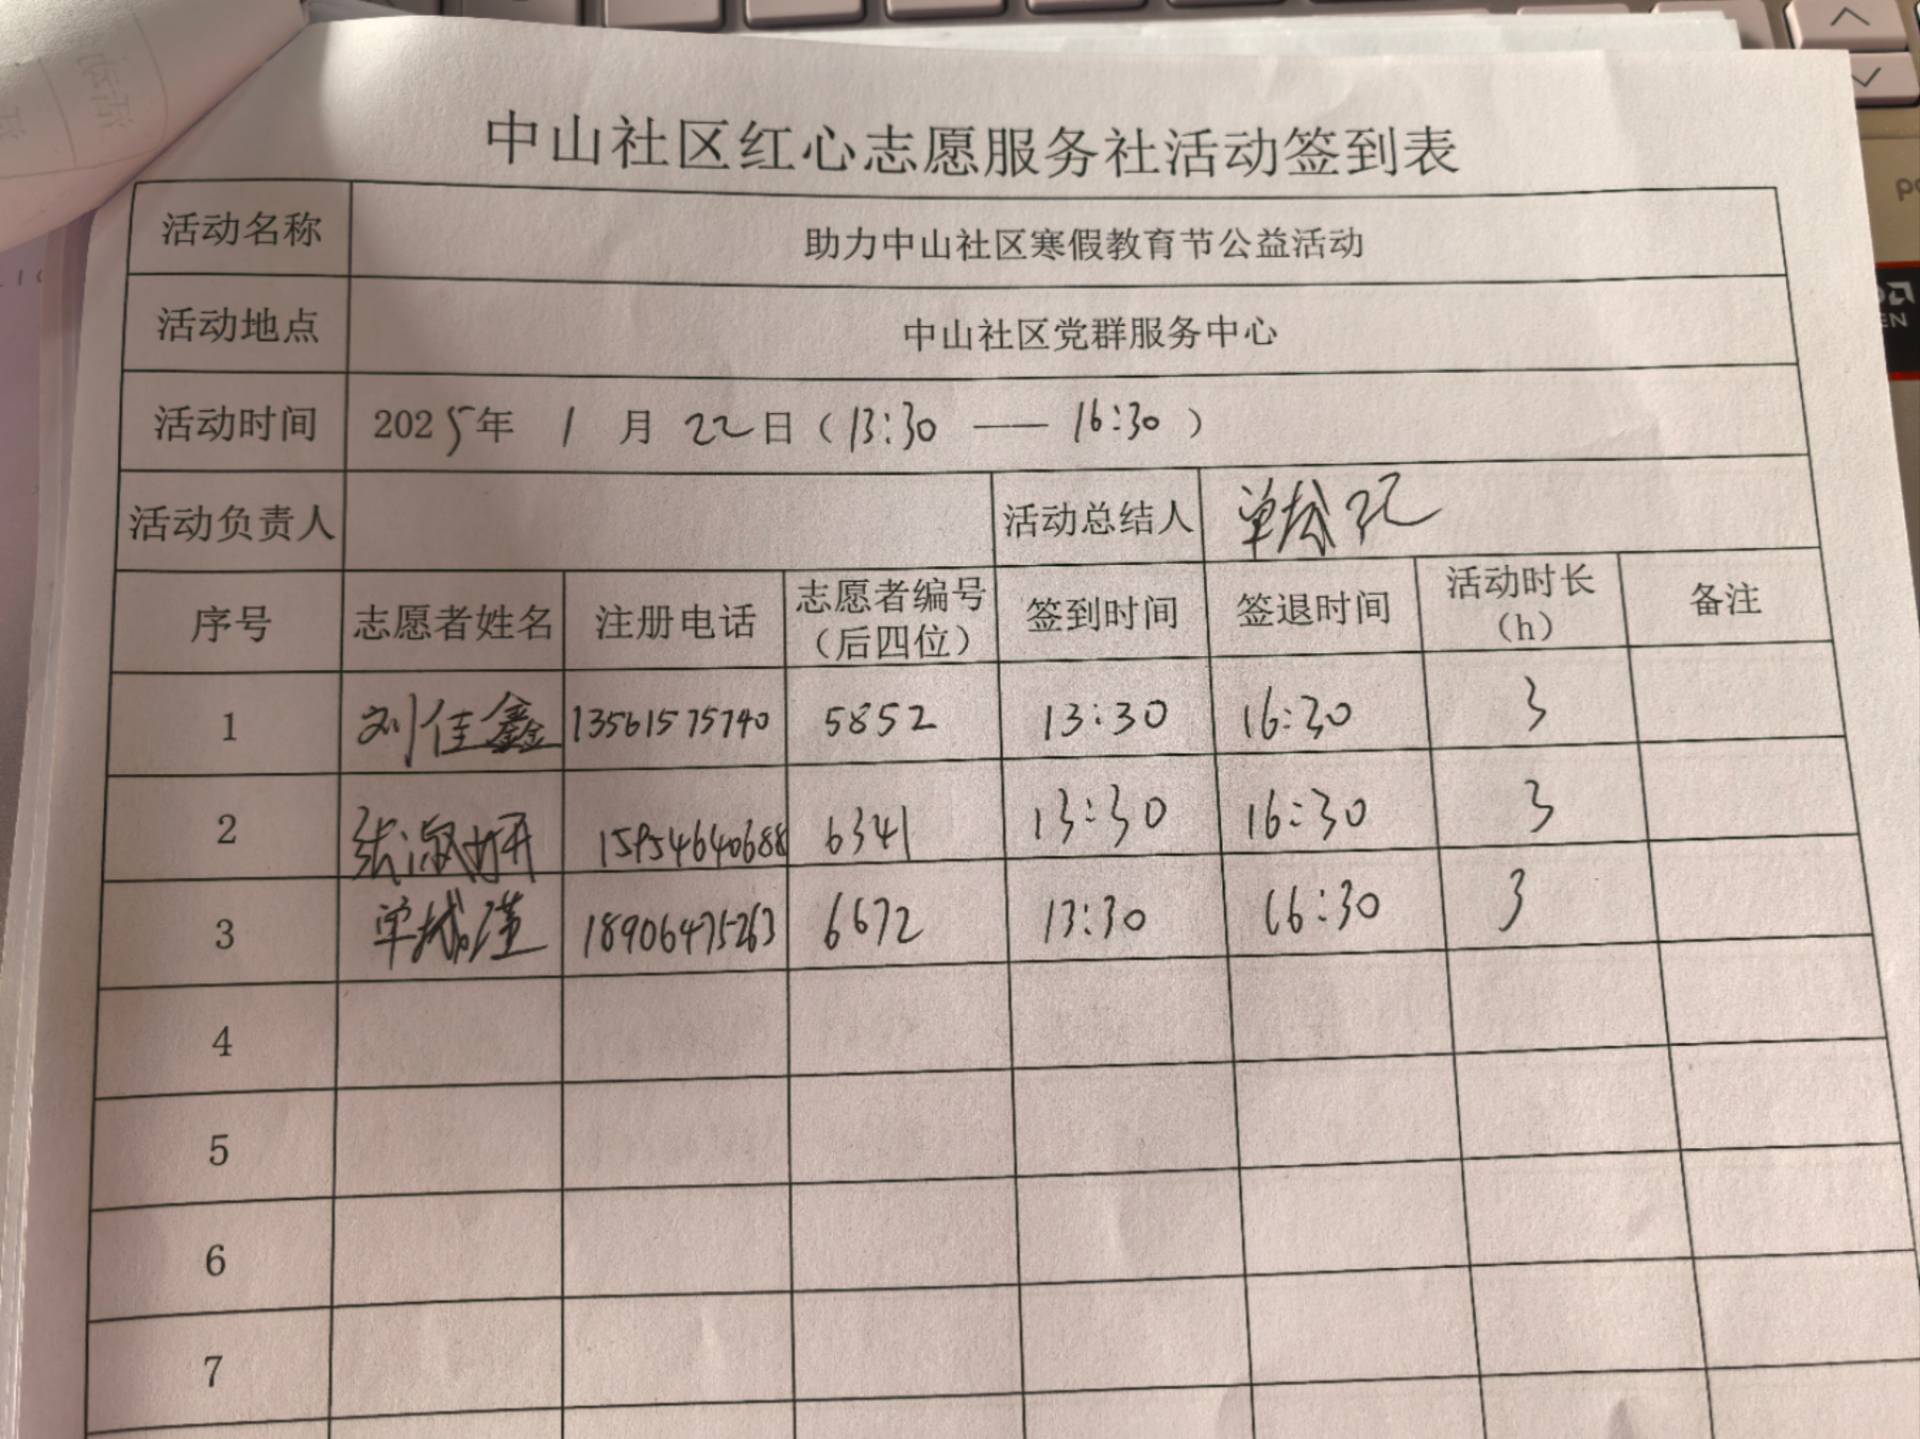 中山社区红心志愿服务社活动签到表
活动名称 助力中山社区寒假教育节公益活动
活动地点 中山社区党群服务中心
活动时间 2025年 1 月 22日（13:30 —— 16:30）
活动负责人 活动总结人 单
序号 志愿者姓名 注册电话 志愿者编号（后四位） 签到时间 签退时间 活动时长（h） 备注
1 刘佳鑫 13561575740 5852 13:30 16:30 3
2 张淑妍 15954640688 6341 13:30 16:30 3
3 单 18906475263 6672 13:30 16:30 3
4
5
6
7